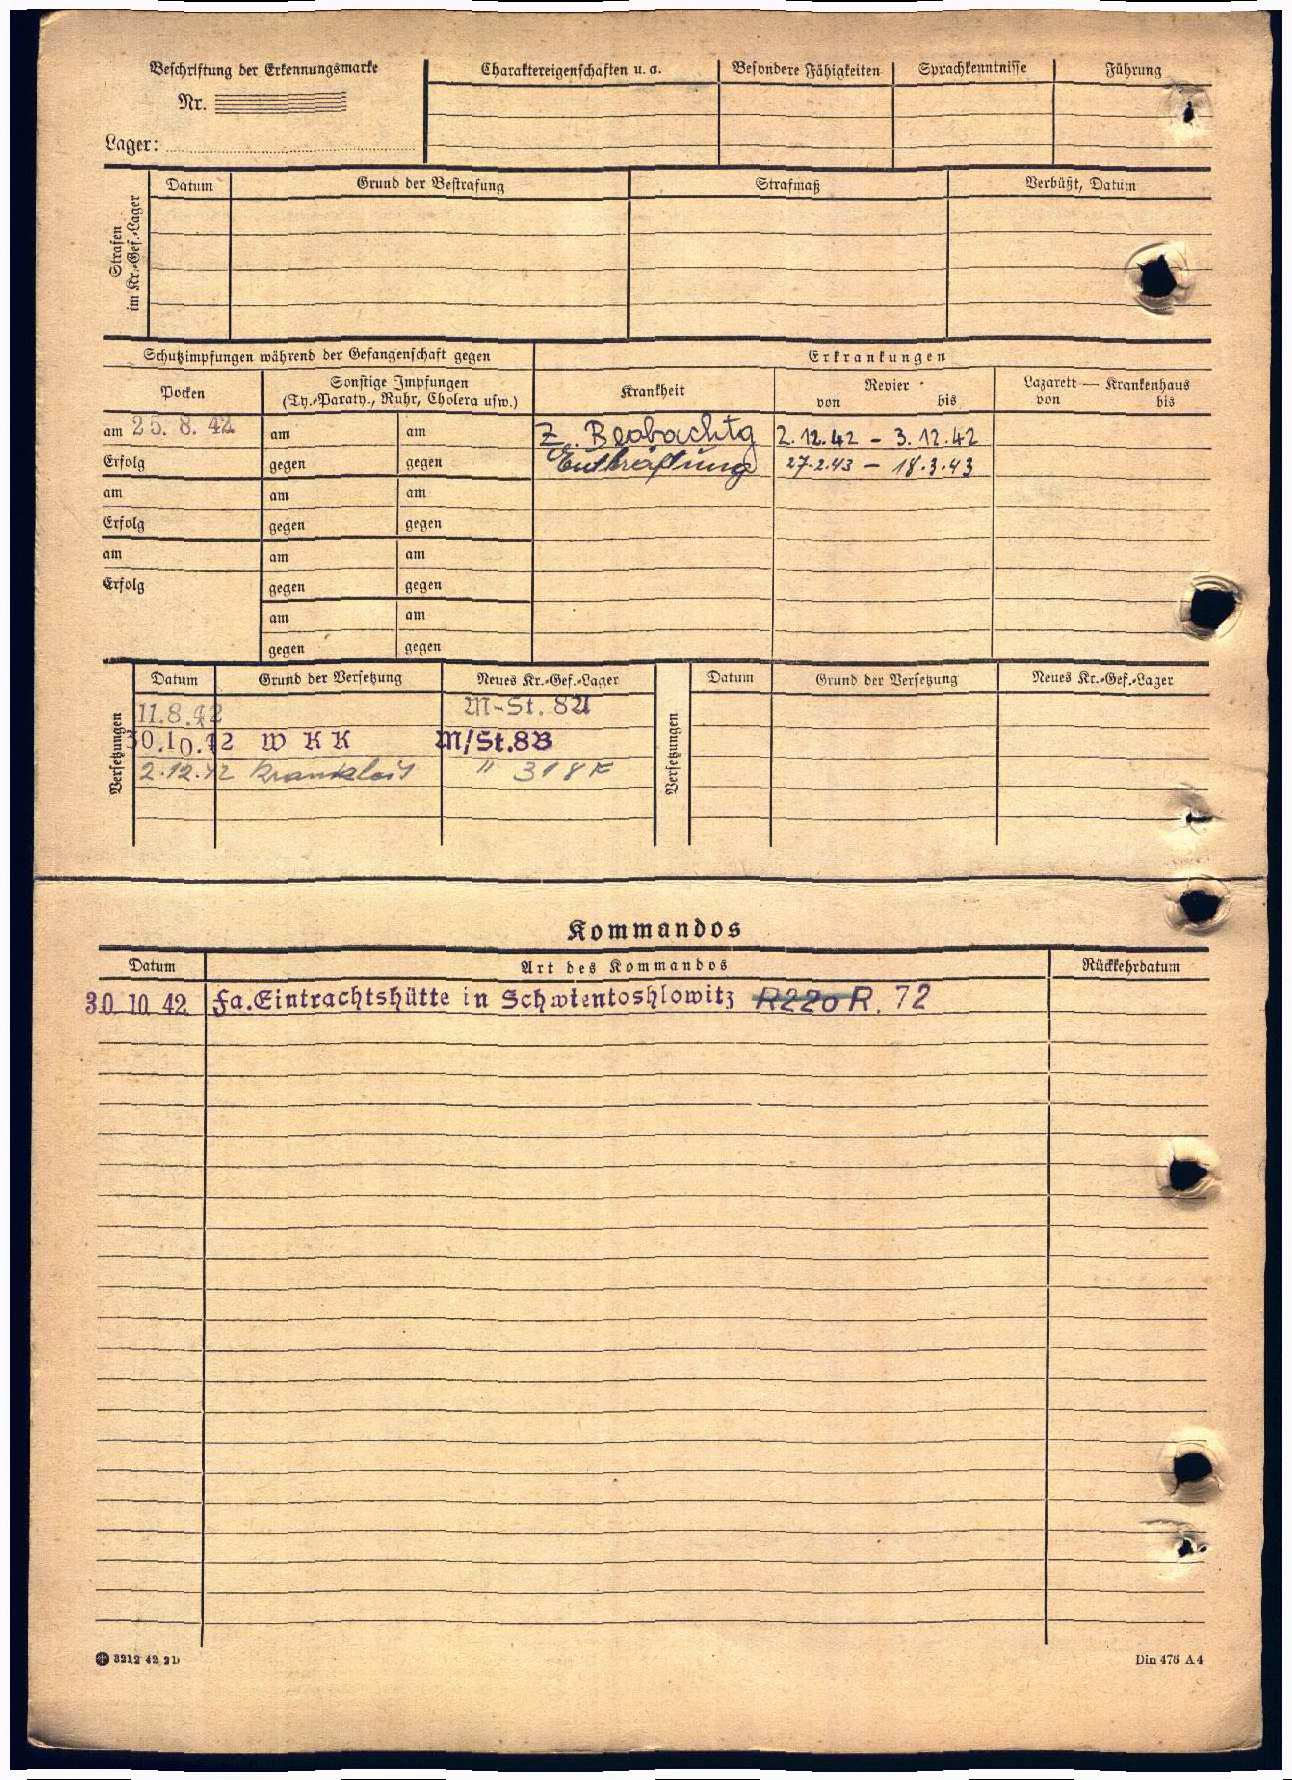 Beschriftung der Erkennungsmarke
Nr.
Lager:
Charaktereigenschaften u. a.
Besondere Fähigkeiten
Sprachkenntnisse
Führung
Strafen
im Kr.-Gef.-Lager
Datum
Grund der Bestrafung
Strafmaß
Verbüßt, Datum
Schutzimpfungen während der Gefangenschaft gegen
Erkrankungen
Pocken
Sonstige Impfungen
(Ty.-Paraty., Ruhr, Cholera usw.)
Krankheit
Revier
von bis
Lazarett — Krankenhaus
von bis
am 25. 8. 42 am am Z. Beobachtg 2.12.42 – 3.12.42
Erfolg gegen gegen Entkräftung 27.2.43 – 18.3.43
am am am
Erfolg gegen gegen
am am am
Erfolg gegen gegen
am am
gegen gegen
Versetzungen
Datum Grund der Versetzung Neues Kr.-Gef.-Lager
11.8.42 M-St. 8A
30.10.42 W K K M/St.8B
2.12.42 " 318 F
Versetzungen
Datum Grund der Versetzung Neues Kr.-Gef.-Lager
Kommandos
Datum Art des Kommandos Rückkehrdatum
30 10 42 Fa.Eintrachtshütte in Schwientoshlowitz R220 R. 72
3212 42 2D
Din 476 A4